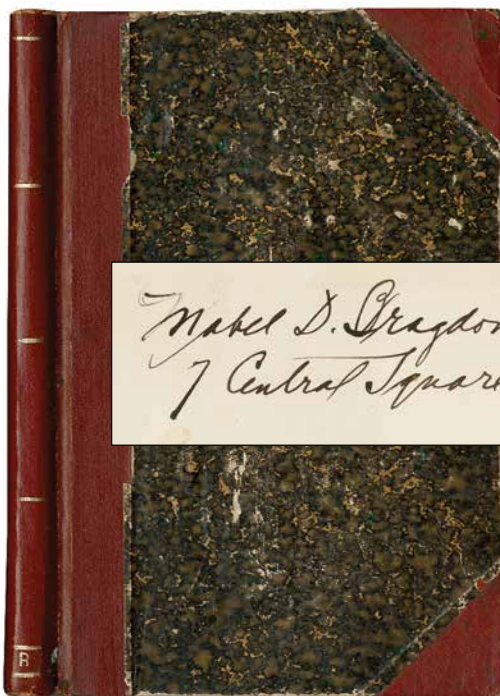 Mabel D. Bragdon
7 Central Square
R